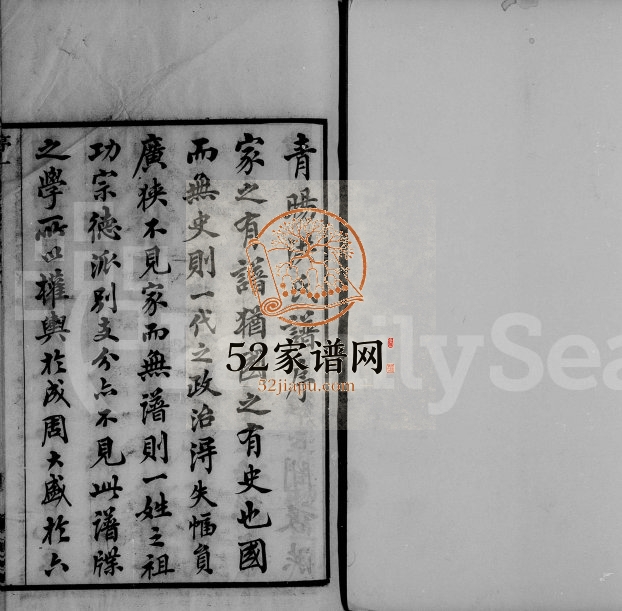 青陽洪氏譜序
家之有譜猶國之有史也國
而無史則一代之政治得失幅員
廣狹不見家而無譜則一姓之祖
功宗德派別支分亦不見此譜牒
之學所以權輿於成周大盛於六
序一
52家谱网
52jiapu.com
FamilySea